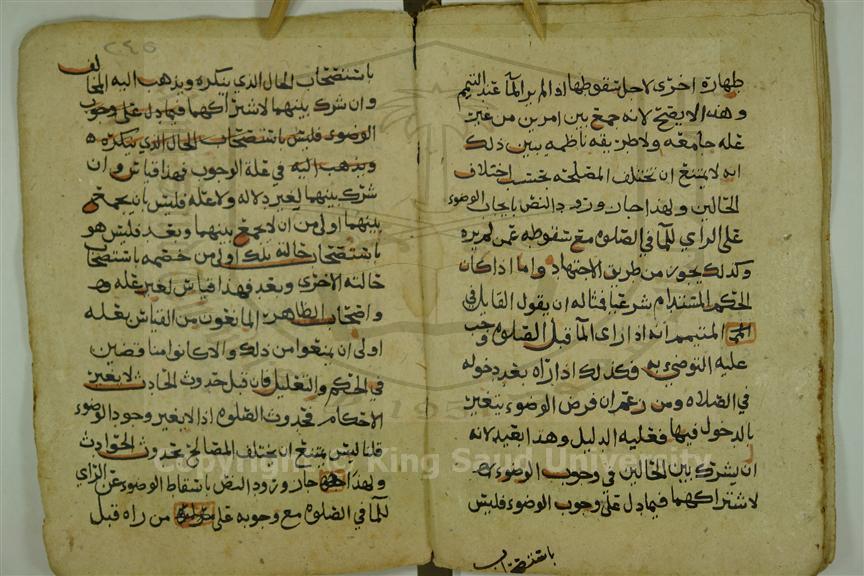 طهارة اخرى لاجل سقوطها اذا لم ير الما عند التيمم
وهذا لا يصح لانه جمع بين امرين من غير
علة جامعه ولا طريقه ناظمه يبين ذلك
انه لا يمتنع ان تختلف المصلحة بحسب اختلاف
الحالين ولهذا جاز ورود النص بايجاب الوضوء
على الراي للما في الصلوة مع سقوطه عمن لم يره
وكذلك يجوز من طريق الاجتهاد واما اذا كان
الحكم المستدام شرعيا فمثاله ان يقول القايل في
المتيمم انه اذا راى الما قبل الصلوة وجب
عليه التوضي به فكذلك اذا راه بعد دخوله
في الصلاة ومن زعم ان فرض الوضوء يتغير
بالدخول فيها فعليه الدليل وهذا بعيد لانه
ان يشرك بين الحالين في وجوب الوضوء
لاشتراكهما فيما دل على وجوب الوضوء فليس
باستصحاب
٢٤٥
باستصحاب الحال الذي ينكره ويذهب اليه المخالف
وان شرك بينهما لاشتراكهما فيما دل على وجوب
الوضوء فليس باستصحاب الحال الذي ينكره
ويذهب اليه في علة الوجوب فهذا قياس وان
شرك بينهما لغير دلاله ولا علة فليس بان يجمع
بينهما اولى من ان لا يجمع بينهما وبعد فليس هو
باستصحاب حالته تلك اولى من خصمه باستصحاب
حالته الاخرى وبعد فهذا قياس لغير علة
واصحاب الظاهر المانعون من القياس بعلة
اولى ان يمنعوا من ذلك والا كانوا مناقضين
في الحكم والتعليل فان قيل حدوث الحادث لا يغير
الاحكام فحدوث الصلوة اذا لا يغير وجوب الوضوء
قلنا ليس يمتنع ان تختلف المصالح بحدوث الحوادث
ولهذا جاز ورود النص باسقاط الوضوء عن الراي
للما في الصلوة مع وجوبه على من راه قبل
Copyright © King Saud University